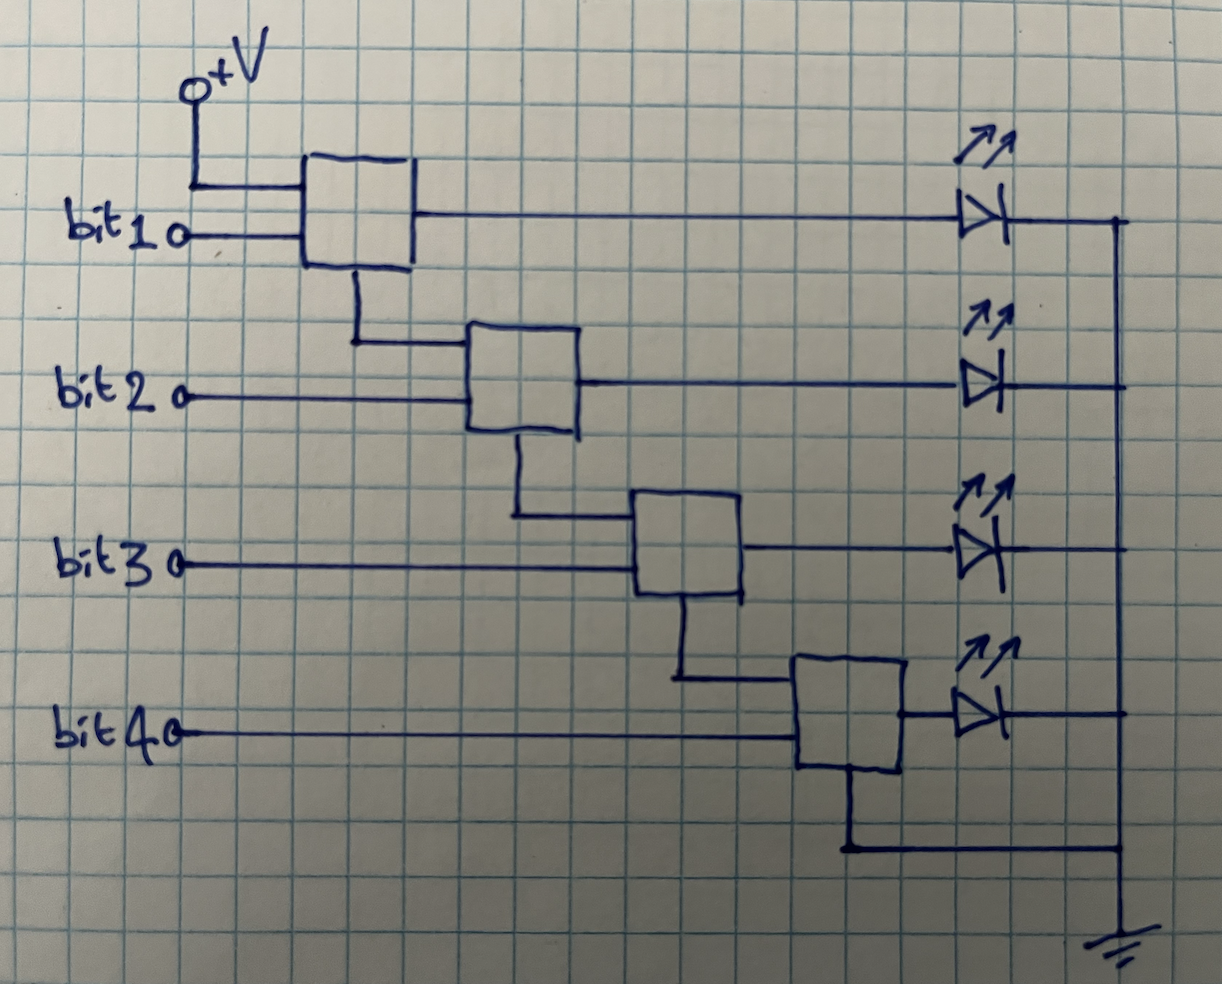 +V
bit1
bit2
bit3
bit4